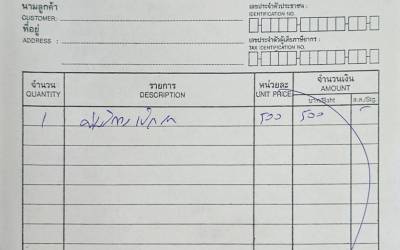 นามลูกค้า
CUSTOMER:
ที่อยู่
ADDRESS :
เลขประจำตัวประชาชน :
IDENTIFICATION NO.
เลขประจำตัวผู้เสียภาษีอากร :
TAX IDENTIFICATION NO.
จำนวน รายการ หน่วยละ จำนวนเงิน
QUANTITY DESCRIPTION UNIT PRICE AMOUNT
บาท/Baht ส.ต./Stg.
1 ๕๐๐ ๕๐๐